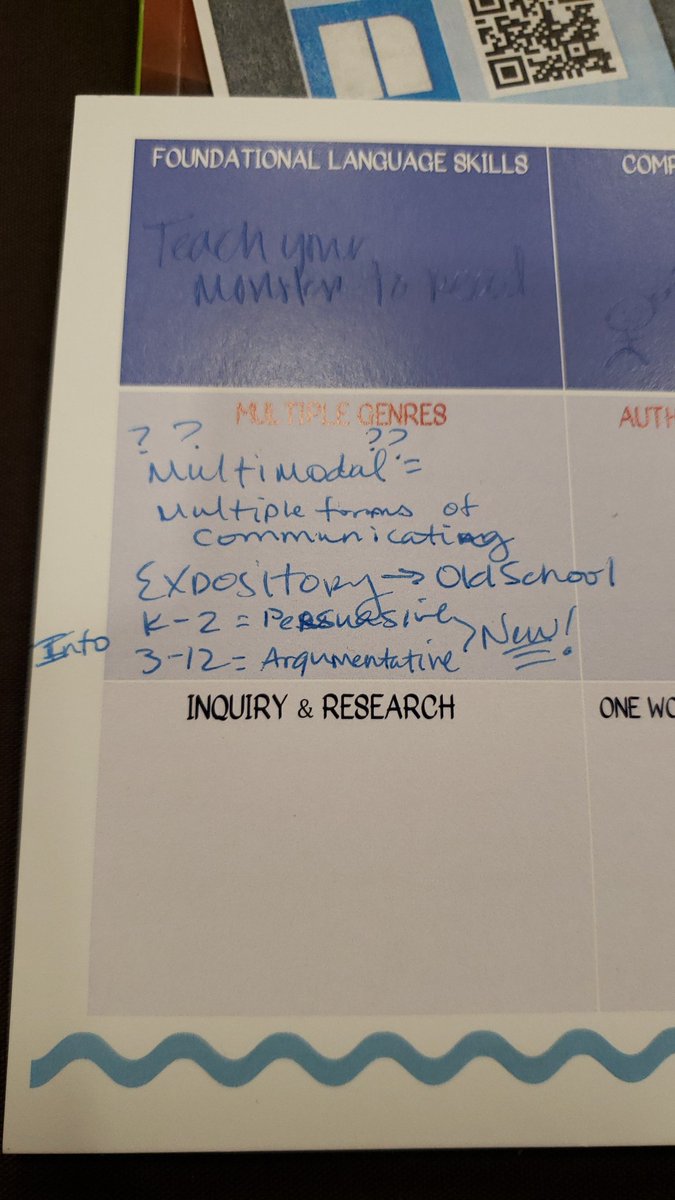 FOUNDATIONAL LANGUAGE SKILLS
COMP
Teach your
monster to read
MULTIPLE GENRES
AUTH
? ? ??
Multimodal =
Multiple forms of
communicating
Expository → Old School
Into K-2 = Persuasive
3-12 = Argumentative
New!
INQUIRY & RESEARCH
ONE WO